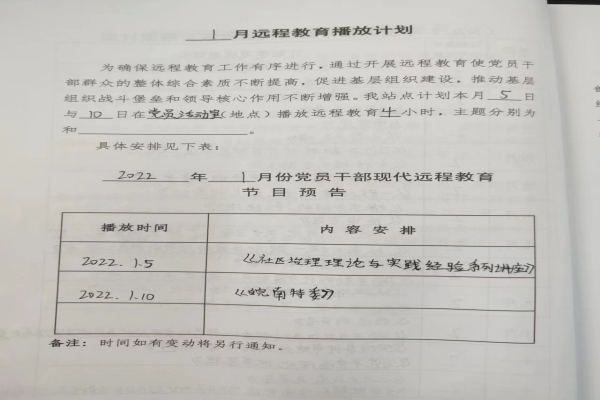 1 月远程教育播放计划
为确保远程教育工作有序进行，通过开展远程教育使党员干
部群众的整体综合素质不断提高，促进基层组织建设，推动基层
组织战斗堡垒和领导核心作用不断增强。我站点计划本月 5 日
与 10 日在党员活动室(地点)播放远程教育 4 小时，主题分别为
和 。
具体安排见下表：
2022 年 1 月份党员干部现代远程教育
节目预告
播放时间 内容安排
2022.1.5 《社区治理理论与实践经验系列讲座》
2022.1.10 《皖南特委》
备注：时间如有变动将另行通知。